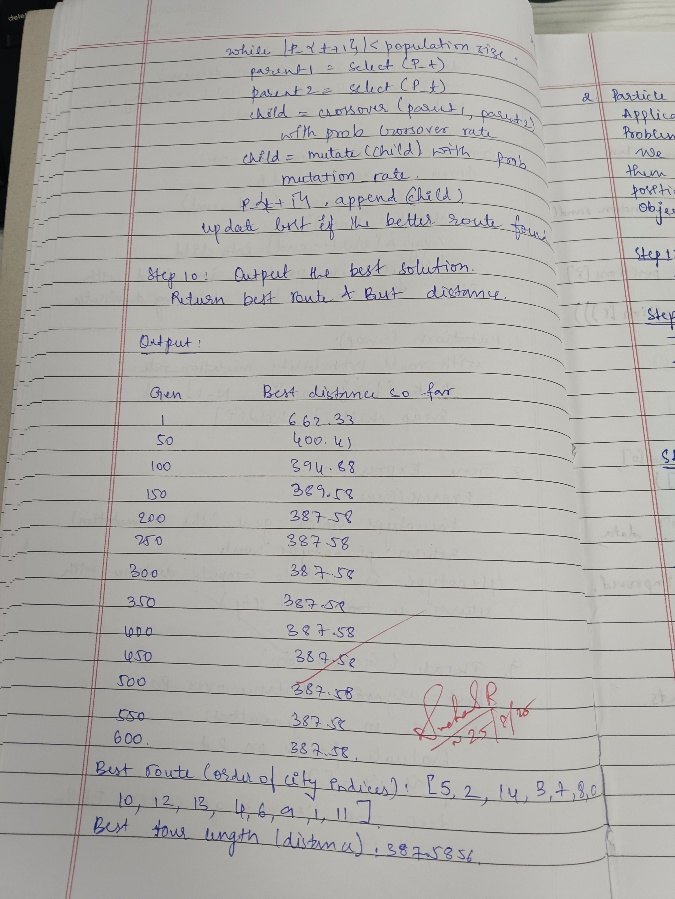 while |P_{t+1}| < population size.
parent1 = select (P_t)
parent2 = select (P_t)
child = crossover (parent1, parent2)
with prob crossover rate
child = mutate (child) with prob
mutation rate.
P_{t+1}. append (child)
update best if the better route found
Step 10: Output the best solution.
Return best route & Best distance.
Output:
Gen Best distance so far
1 662.33
50 400.41
100 394.68
150 389.58
200 387.58
250 387.58
300 387.58
350 387.58
400 387.58
450 387.58
500 387.58
550 387.58
600. 387.58.
25/8/25
Best route (order of city indices): [5, 2, 14, 3, 7, 8, 0
10, 12, 13, 4, 6, 9, 1, 11]
Best tour length (distance): 387.5856.
2 Particle
Applica
Problem
We
them
positi
Objec
Step 1:
Step